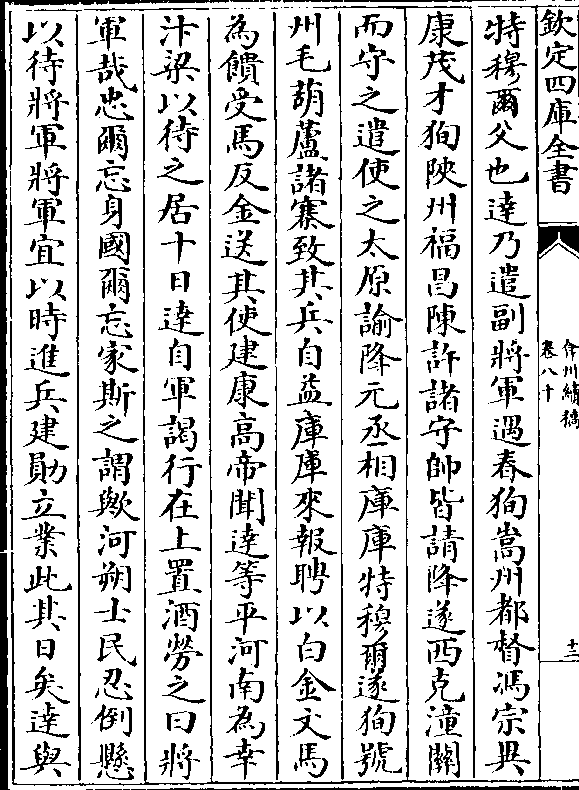 欽定四庫全書
弇州續稿
卷八十
十三
特穆爾父也達乃遣副將軍遇春狥嵩州都督馮宗異
康茂才狥陜州福昌陳許諸守帥皆請降遂西克潼關
而守之遣使之太原諭降元丞相庫庫特穆爾遂狥號
州毛葫蘆諸寨致其兵自益庫庫來報聘以白金文馬
為饋受馬反金送其使建康高帝聞達等平河南為幸
汴梁以待之居十日達自軍謁行在上置酒勞之曰將
軍哉忠爾忘身國爾忘家斯之謂歟河朔士民忍倒懸
以待將軍將軍宜以時進兵建勛立業此其日矣達與